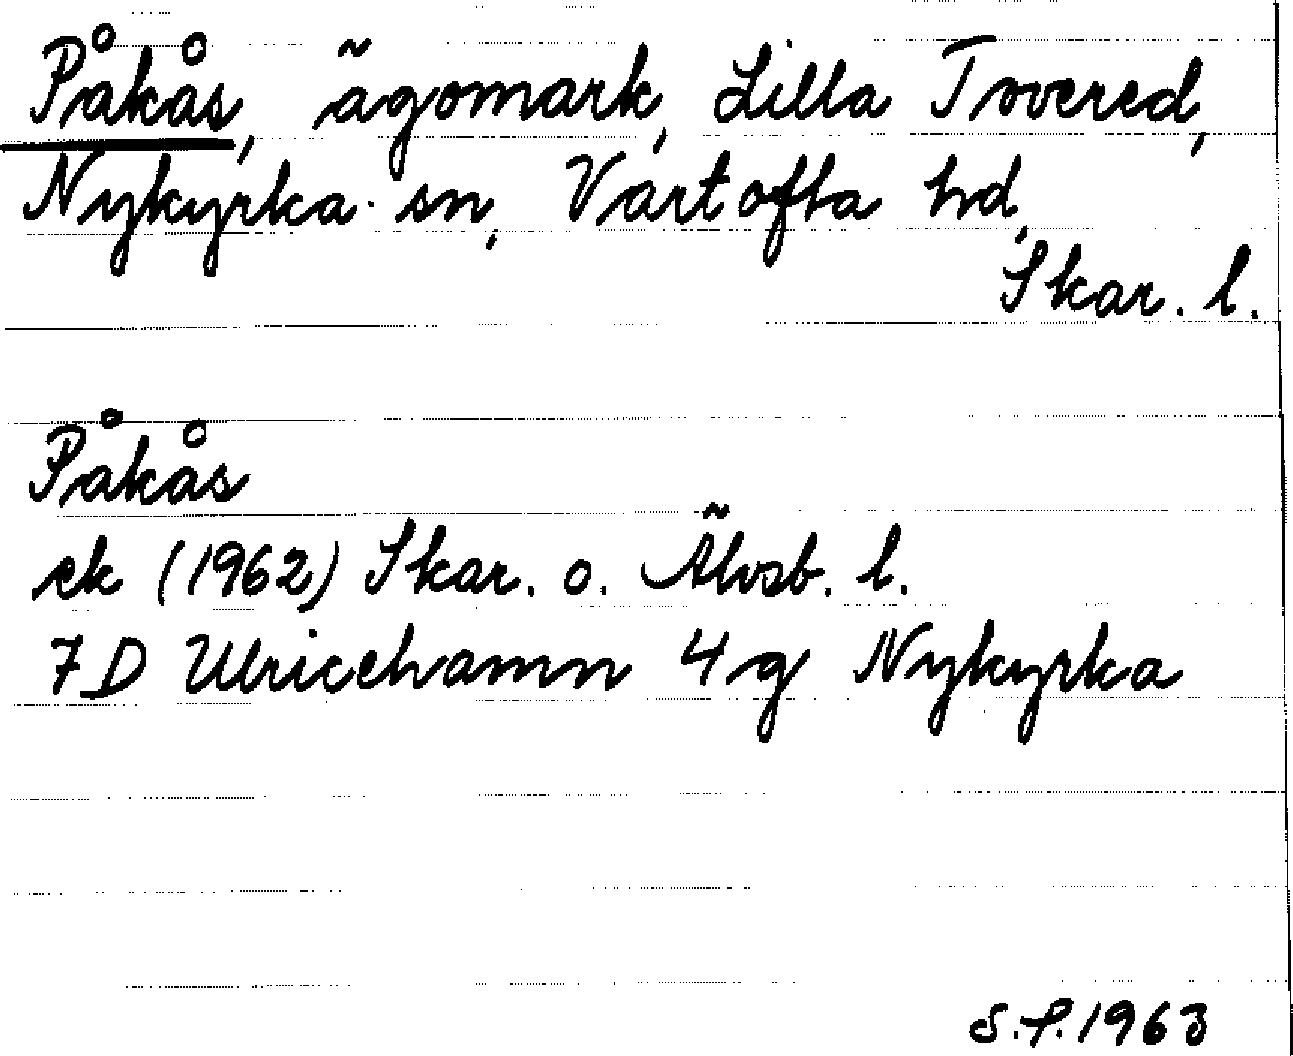 Påkås, ägomark, Lilla Tovered,
Nykyrka sn, Vartofta hd,
Skar. l.
Påkås
ek (1962) Skar. o. Älvsb. l.
7D Ulricehamn 4g Nykyrka
S.P. 1963